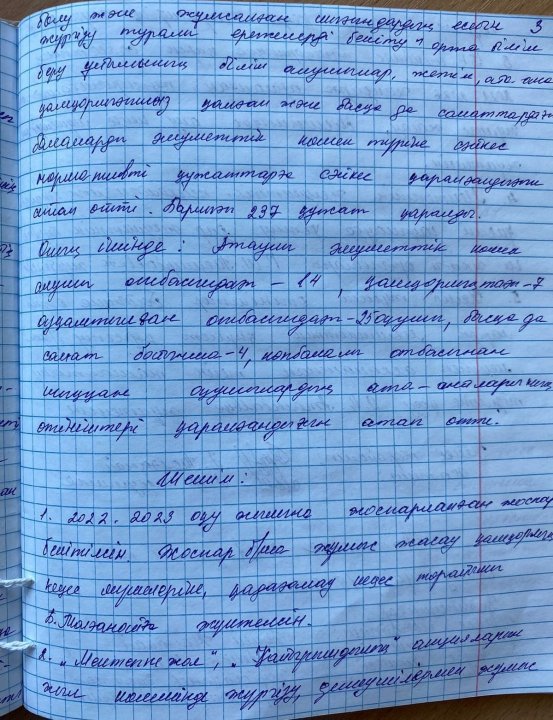 бөлу және жұмсалған шығындардың есебін 3
жүргізу туралы ережелерді бекіту" орта білім
беру ұйымының білім алушылар, жетім, ата ана
қамқорлығынсыз қалған және басқа да санаттардағы
балаларды әлуметтік көмек түріне сәйкес
нормативті құжаттарға сәйкес қаралғандығын
атап өтті. Барлығы 237 құжат қаралды.
Оның ішінде: Атаулы әлуметтік көмек
алушы отбасыдан - 14, қамқорлықтан - 7
отбасыдан - 25 оқушы, басқа да
санат бойынша - 4, көпбалалы отбасынан
шыққан оқушылардың ата - аналарының
өтініштері қаралғандығын атап өтті.
Шешім:
1. 2022-2023 оқу жылына жоспарланған жоспар
бекітілсін. Жоспар б/ша жұмыс жасау қамқорлық
кеңес мүшелеріне, қадағалау кеңес төрайымы
жүктелсін.
2. "Мектепке жол", акциялары
жыл көлемінде жүргізу, демеушілермен жұмыс